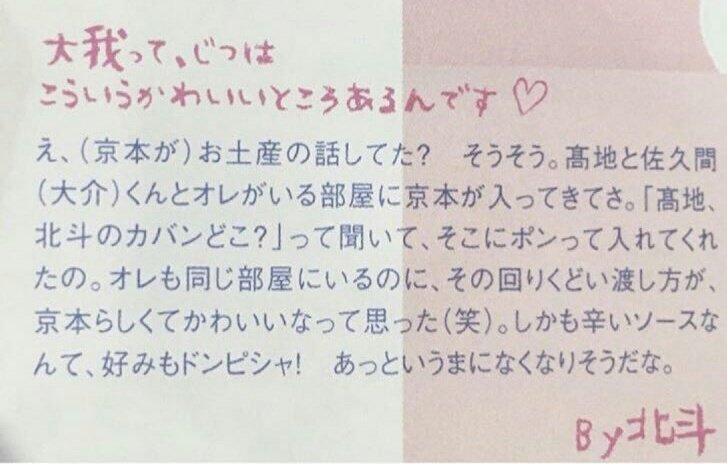 大我って、じつは
こういうかわいいところあるんです♡
え、(京本が)お土産の話してた?　そうそう。髙地と佐久間
(大介)くんとオレがいる部屋に京本が入ってきてさ。「髙地、
北斗のカバンどこ?」って聞いて、そこにポンって入れてくれ
たの。オレも同じ部屋にいるのに、その回りくどい渡し方が、
京本らしくてかわいいなって思った(笑)。しかも辛いソースな
んて、好みもドンピシャ!　あっというまになくなりそうだな。
By北斗